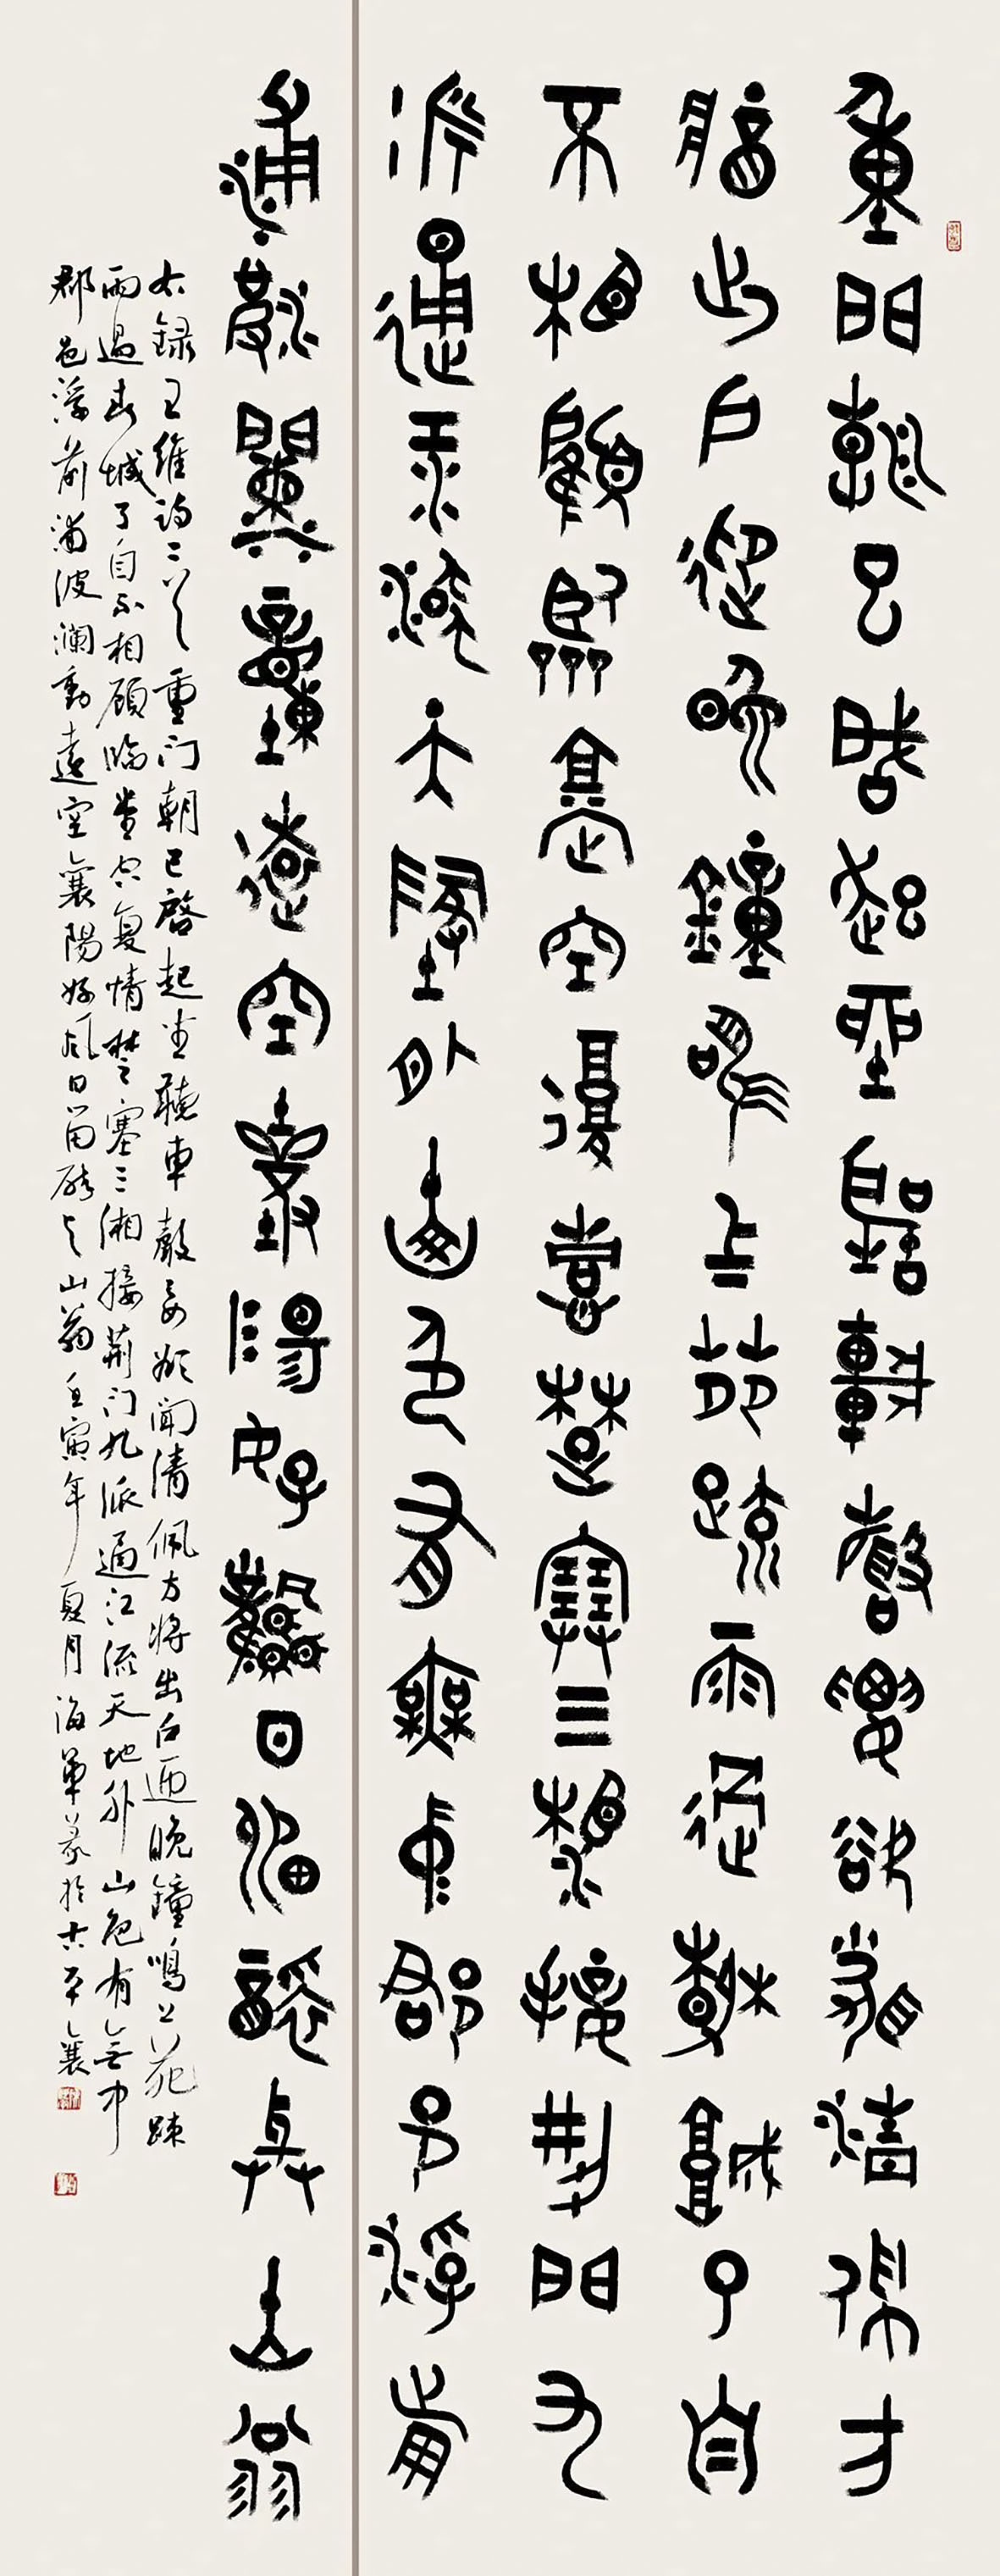 重門朝已啓起坐聽車聲要欲聞清佩方
將出戶迎晚鐘鳴上苑疏雨過春城了自
不相顧臨堂空復情楚塞三湘接荊門九
派通江流天地外山色有無中郡邑浮前
浦波瀾動遠空襄陽好風日留醉與山翁
右録王維詩二首 重门朝已啓起坐聽車聲要欲闻清佩方将出户迎晚鐘鳴上苑疎
雨過春城了自不相顾臨堂空复情楚塞三湘接荆门九派通江流天地外山色有無中
郡邑浮前浦波瀾動遠空襄陽好風日留醉与山翁 壬寅年夏月海軍篆於古平襄